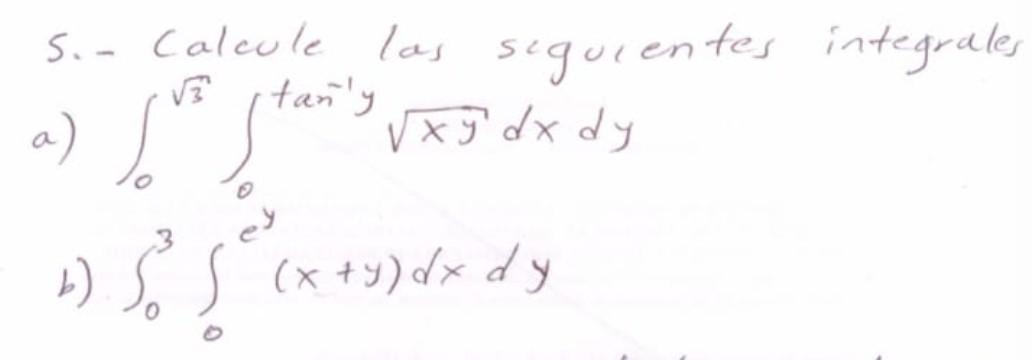 5.- Calcule las siguientes integrales
a) ∫₀^√3 ∫₀^tan⁻¹y √xy dx dy
b) ∫₀³ ∫₀^e^y (x+y) dx dy